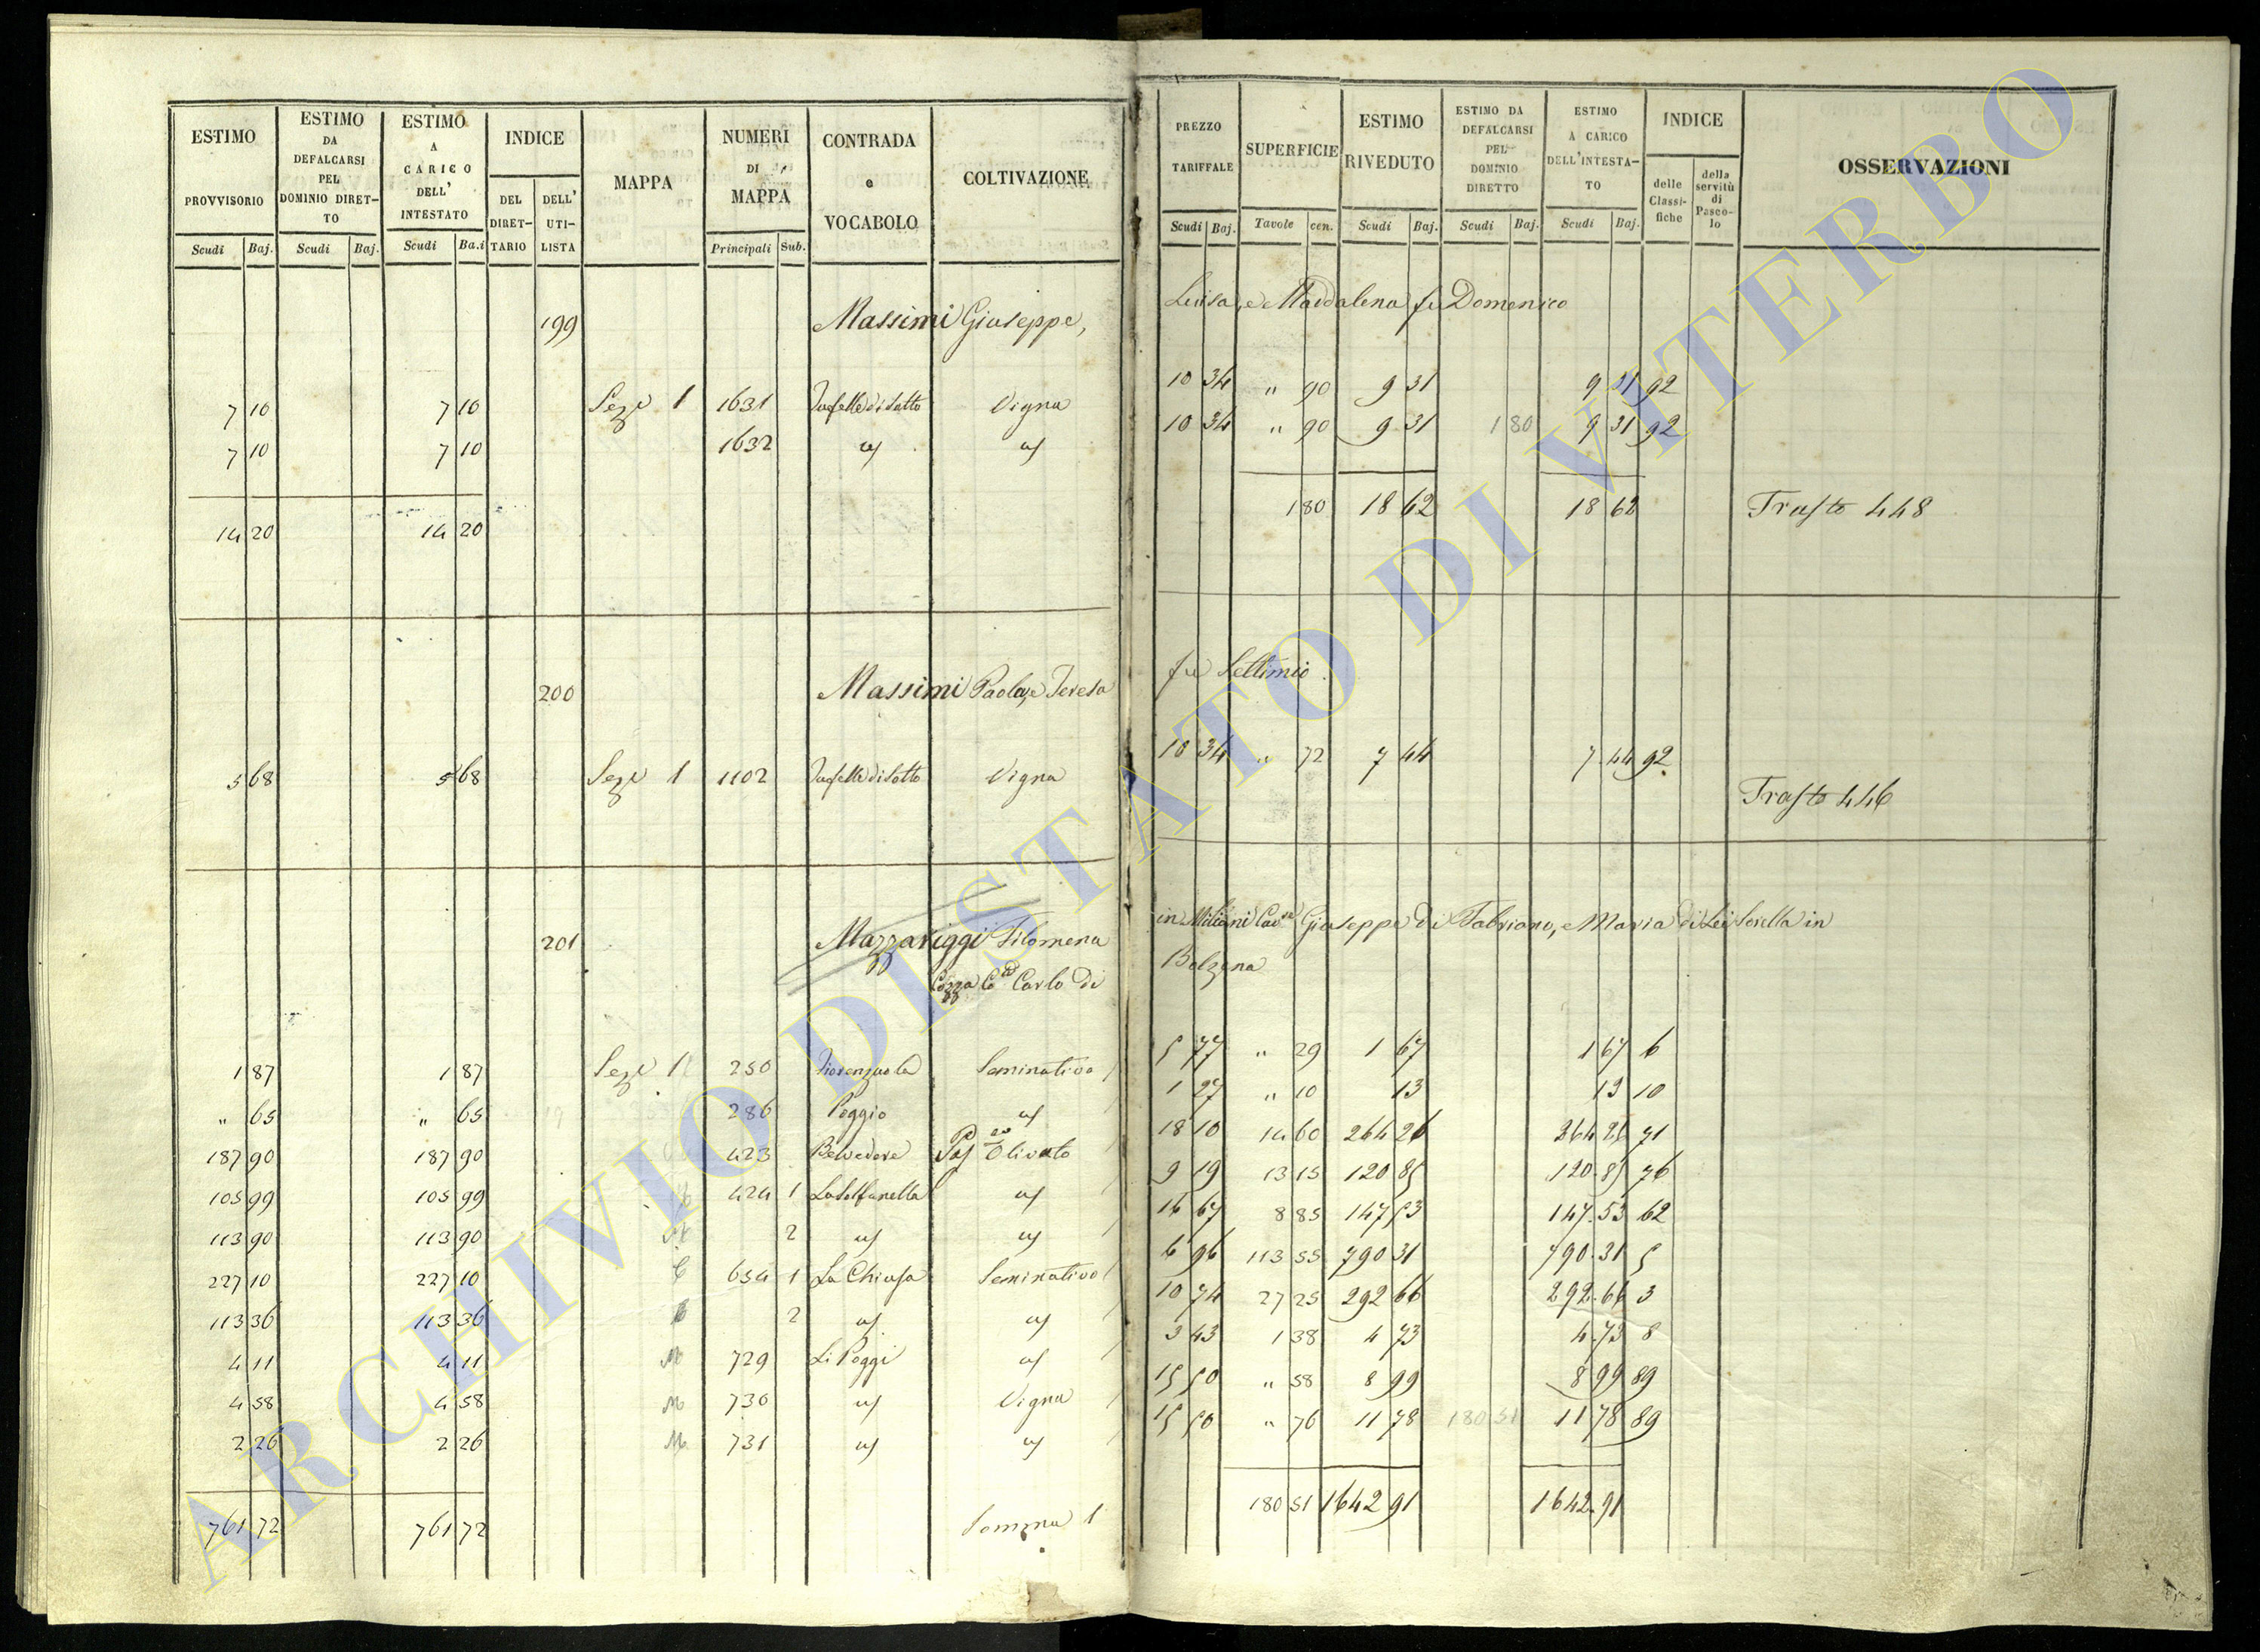 ESTIMO PROVVISORIO
ESTIMO DA DEFALCARSI PEL DOMINIO DIRET-TO
ESTIMO A CARICO DELL' INTESTATO
INDICE
DEL DIRET-TARIO
DELL' UTI-LISTA
MAPPA
NUMERI DI MAPPA
CONTRADA e VOCABOLO
COLTIVAZIONE
PREZZO TARIFFALE
SUPERFICIE
ESTIMO RIVEDUTO
ESTIMO DA DEFALCARSI PEL DOMINIO DIRETTO
ESTIMO A CARICO DELL'INTESTA-TO
INDICE
delle Classi-fiche
della servitù di Pasco-lo
OSSERVAZIONI
Scudi Baj. Scudi Baj. Scudi Ba.i Principali Sub. Scudi Baj. Tavole cen. Scudi Baj. Scudi Baj. Scudi Baj.
199 Massimi Giuseppe, Luisa, e Maddalena fu Domenico
7 10 7 10 Sez.e 1 1631 di Sotto Vigna 10 34 " 90 9 31 9 31 92
7 10 7 10 1632 10 34 " 90 9 31 1 80 9 31 92
14 20 14 20 1 80 18 62 18 62 448
200 Massimi Paola, e Teresa fu Settimio
5 68 5 68 Sez.e 1 1102 di Sotto Vigna 10 34 " 72 7 44 7 44 92
446
201 Mazzariggi Filomena in Miliani Giuseppe di Fabriano, e Maria di Lei Sorella in
Cozza Carlo di Bolzena
1 87 1 87 Sez.e 1 250 Fiorenzuola Seminativo 5 77 " 29 1 67 1 67 6
" 65 " 65 286 Poggio 1 27 " 10 13 13 10
187 90 187 90 423 Belvedere Olivato 18 10 14 60 264 26 71
105 99 105 99 424 1 La Solfanella 9 19 13 15 120 85 120 85 76
113 90 113 90 2 16 67 8 85 147 53 147 53 62
227 10 227 10 654 1 La Chiusa Seminativo 6 96 113 55 790 31 790 31 5
113 36 113 36 2 10 74 27 25 292 66 292 66 3
4 11 4 11 729 Li Poggi 3 43 1 38 4 73 4 73 8
4 58 4 58 730 Vigna 15 50 " 58 8 99 8 99 89
2 26 2 26 731 15 50 " 76 11 78 180 51 11 78 89
761 72 761 72 Somma 1 180 51 1642 91 1642 91
ARCHIVIO DI STATO DI VITERBO